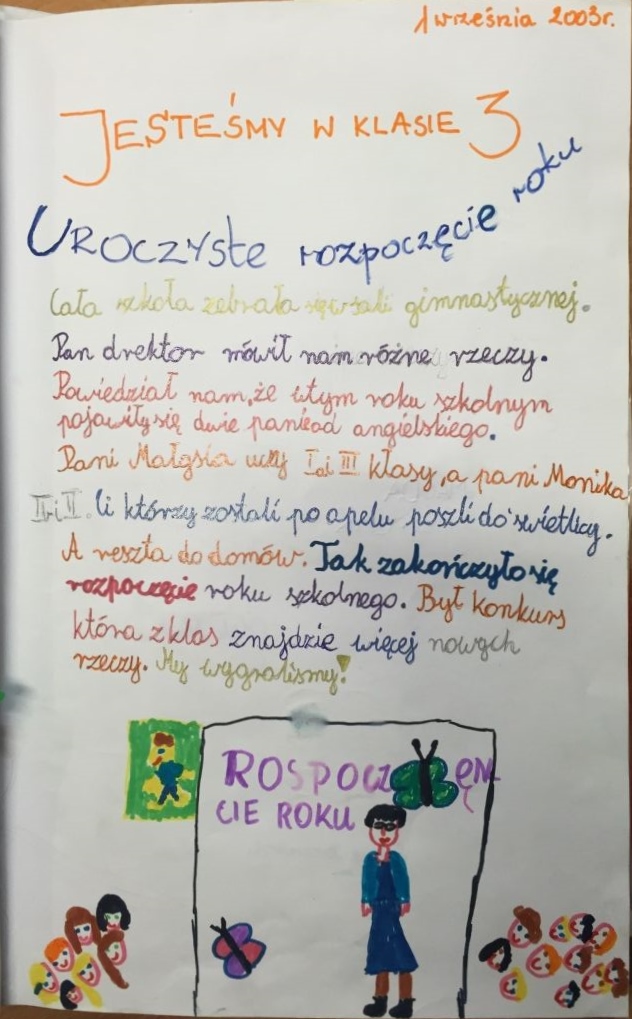 1 września 2003r.
JESTEŚMY W KLASIE 3
UROCZYSte rozpoczęcie roku
Cała szkoła zebrała się w sali gimnastycznej.
Pan drektor mówił nam różne rzeczy.
Powiedział nam, że wtym roku szkolnym
pojawiły się dwie panie od angielskiego.
Pani Małgsia uczy I, i III klasy, a pani Monika
II i V. Ci którzy zostali po apelu poszli do świetlicy.
A reszta do domów. Tak zakończyło się
rozpoczęcie roku szkolnego. Był konkurs
która z klas znajdzie więcej nowych
rzeczy. My wygraliśmy!
ROSPOCZ ĘN
CIE ROKU